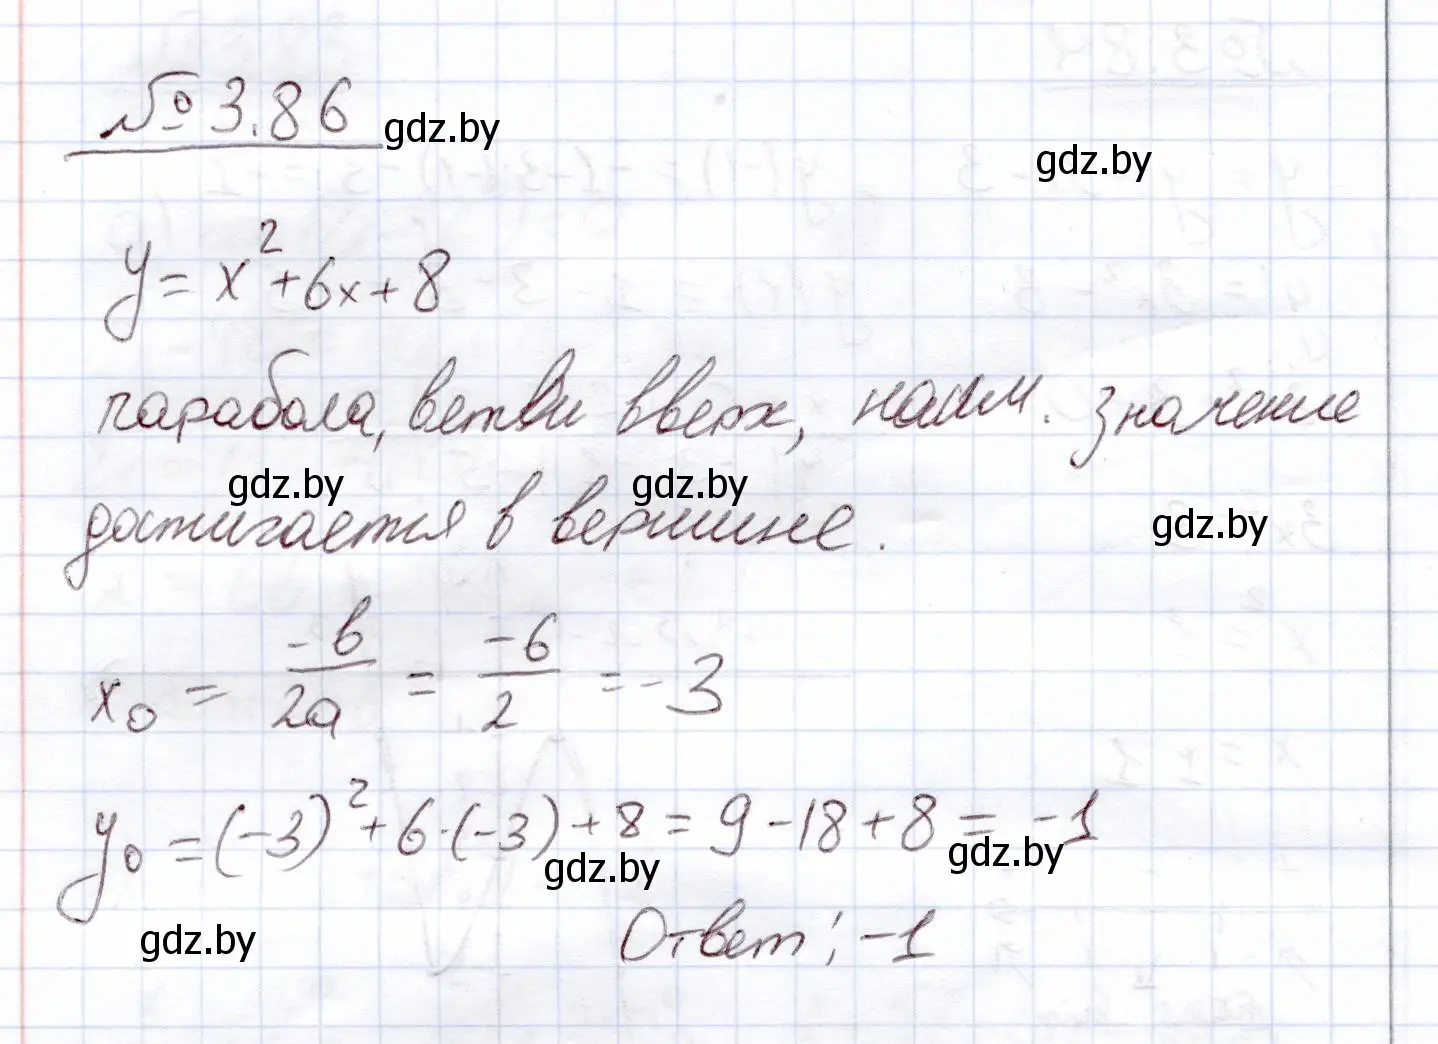 № 3.86 gdz.by
gdz.by
y = x² + 6x + 8
парабола, ветви вверх, наим. значение
gdz.by gdz.by
достигается в вершине.
gdz.by
x₀ = -b/2a = -6/2 = -3
y₀ = (-3)² + 6·(-3) + 8 = 9 - 18 + 8 = -1
gdz.by gdz.by
gdz.by
Ответ: -1